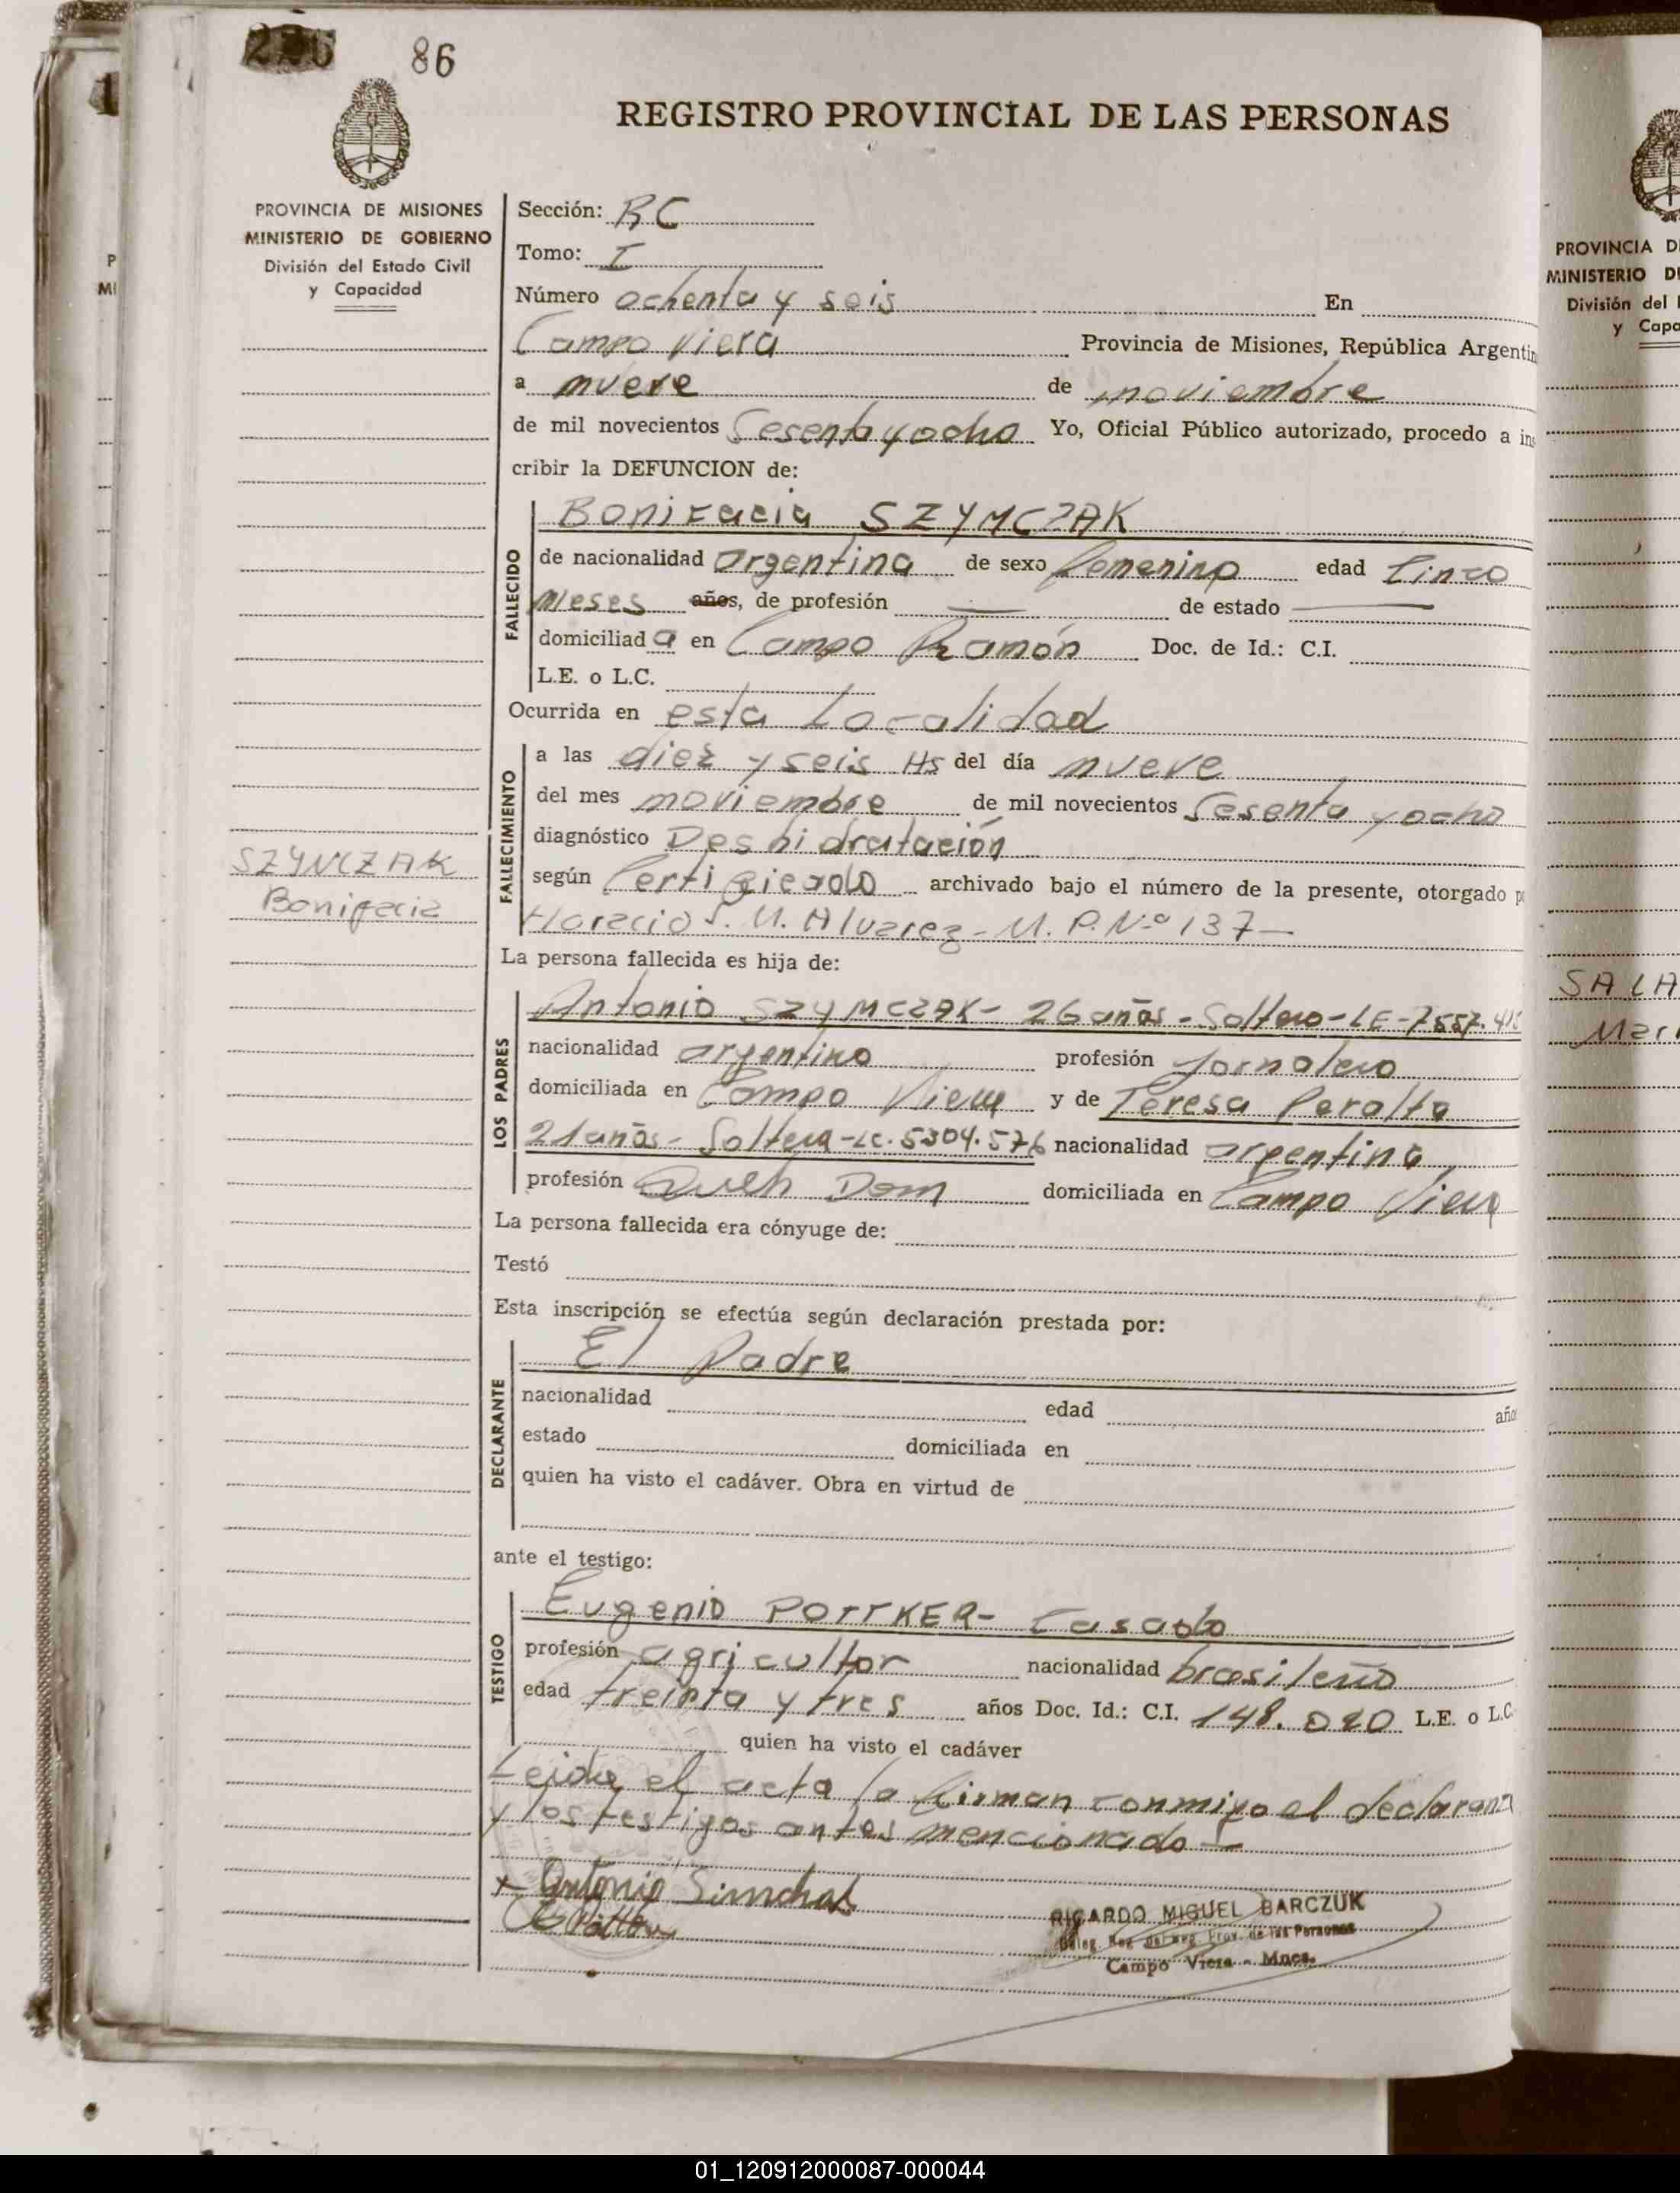 86
REGISTRO PROVINCIAL DE LAS PERSONAS
PROVINCIA DE MISIONES
MINISTERIO DE GOBIERNO
División del Estado Civil
y Capacidad
Sección: RC
Tomo: I
Número ochenta y seis En
Campo Viera Provincia de Misiones, República Argentin
a nueve de noviembre
de mil novecientos Sesenta y ocho Yo, Oficial Público autorizado, procedo a ins
cribir la DEFUNCION de:
FALLECIDO
Bonifacia SZYMCZAK
de nacionalidad argentina de sexo femenino edad Cinco
Meses años, de profesión — de estado —
domiciliada en Campo Ramón Doc. de Id.: C.I.
L.E. o L.C.
Ocurrida en esta Localidad
FALLECIMIENTO
a las diez y seis Hs del día nueve
del mes noviembre de mil novecientos Sesenta y ocho
diagnóstico Deshidratación
según Certificado archivado bajo el número de la presente, otorgado p
Horacio S. M. Alvarez - M. P. Nº 137 —
SZYNCZAK
Bonifacia
La persona fallecida es hija de:
LOS PADRES
Antonio SZYMCZAK - 26 años - Soltero - LE - 7557.
nacionalidad argentino profesión Jornalero
domiciliada en Campo Viera y de Teresa Peralta
21 años - Soltera - LC. 5304.576 nacionalidad argentina
profesión Queh Dom domiciliada en Campo Viera
La persona fallecida era cónyuge de:
Testó
Esta inscripción se efectúa según declaración prestada por:
DECLARANTE
El Padre
nacionalidad edad año
estado domiciliada en
quien ha visto el cadáver. Obra en virtud de
ante el testigo:
TESTIGO
Eugenio POTTKER - Casado
profesión agricultor nacionalidad brasileño
edad treinta y tres años Doc. Id.: C.I. 148.020 L.E. o L.C.
quien ha visto el cadáver
Leida el acta la firman conmigo el declarant
y los testigos antes mencionado —
x Antonio Simchak
RICARDO MIGUEL BARCZUK
Deleg. Prov. de las Personas
Campo Viera - Mnes.
PROVINCIA D
MINISTERIO D
División del
y Capa
SALA
01_120912000087-000044